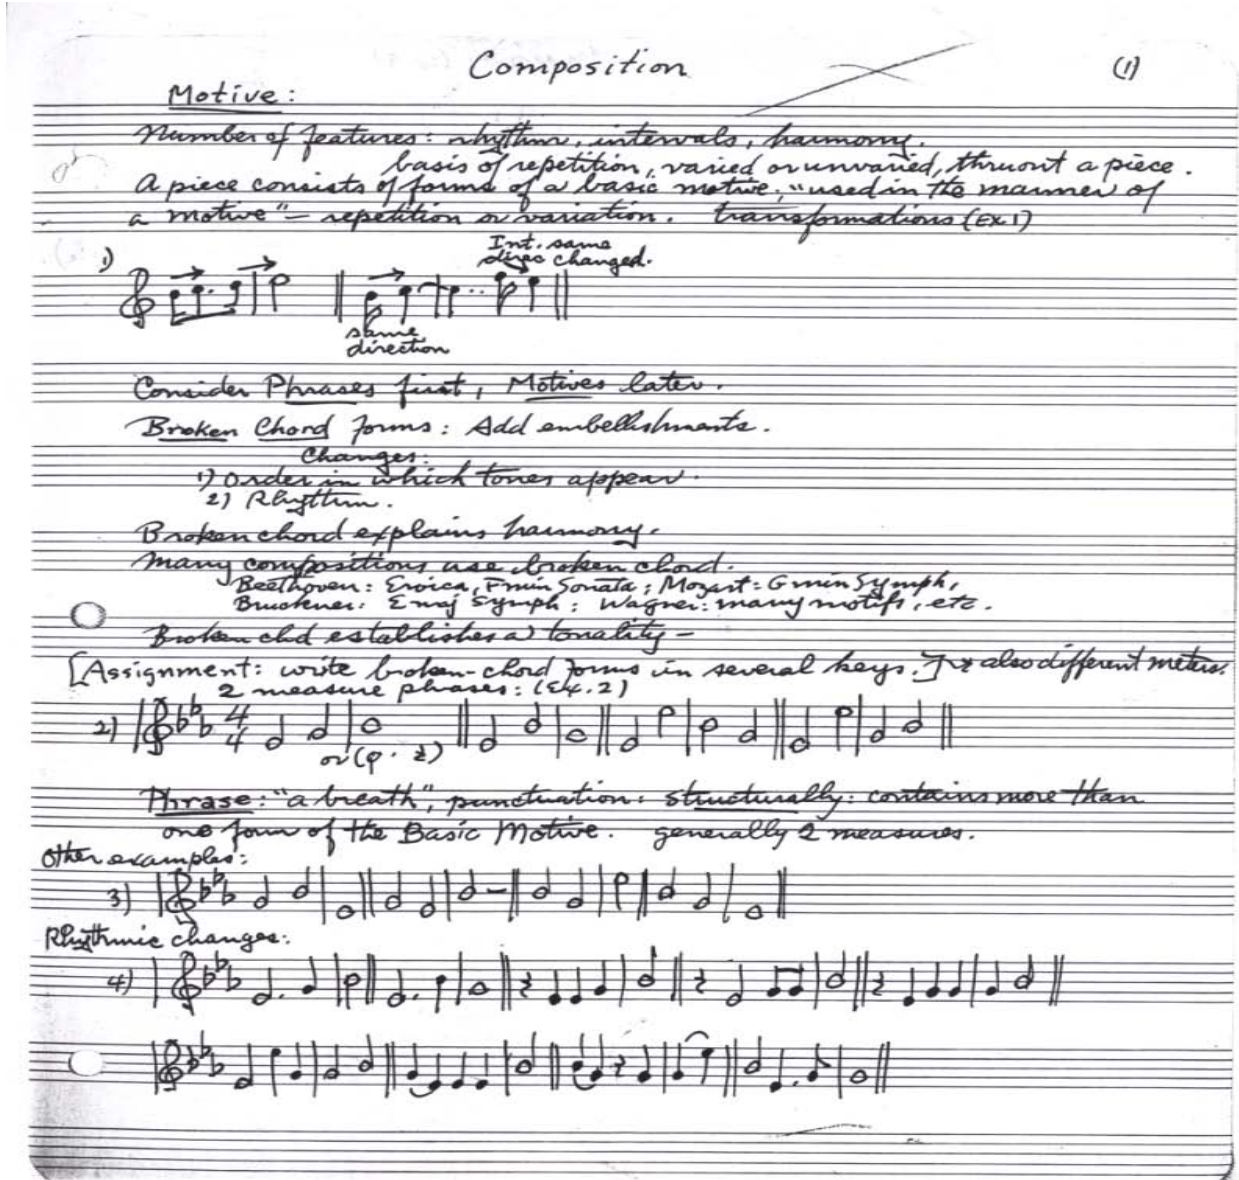 Composition (1)
Motive:
Number of features: rhythm, intervals, harmony.
basis of repetition, varied or unvaried, thruout a piece.
A piece consists of forms of a basic motive; "used in the manner of
a motive" — repetition or variation. transformations (Ex 1)
Int. same
direc changed.
1)
same
direction
Consider Phrases first, Motives later.
Broken Chord forms: Add embellishments.
Changes:
1) Order in which tones appear.
2) Rhythm.
Broken chord explains harmony.
Many compositions use broken chord.
Beethoven: Eroica, F min Sonata; Mozart: G min Symph,
Bruckner: E maj Symph; Wagner: many motifs, etc.
Broken chd establishes a tonality —
[Assignment: write broken-chord forms in several keys.] also different meters.
2 measure phrases: (Ex. 2)
2) 4 4
or
Phrase: "a breath", punctuation: structurally: contains more than
one form of the Basic Motive. generally 2 measures.
Other examples:
3)
Rhythmic changes:
4)